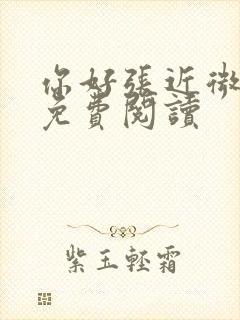 你好張近微
免費閱讀
紫玉輕霜